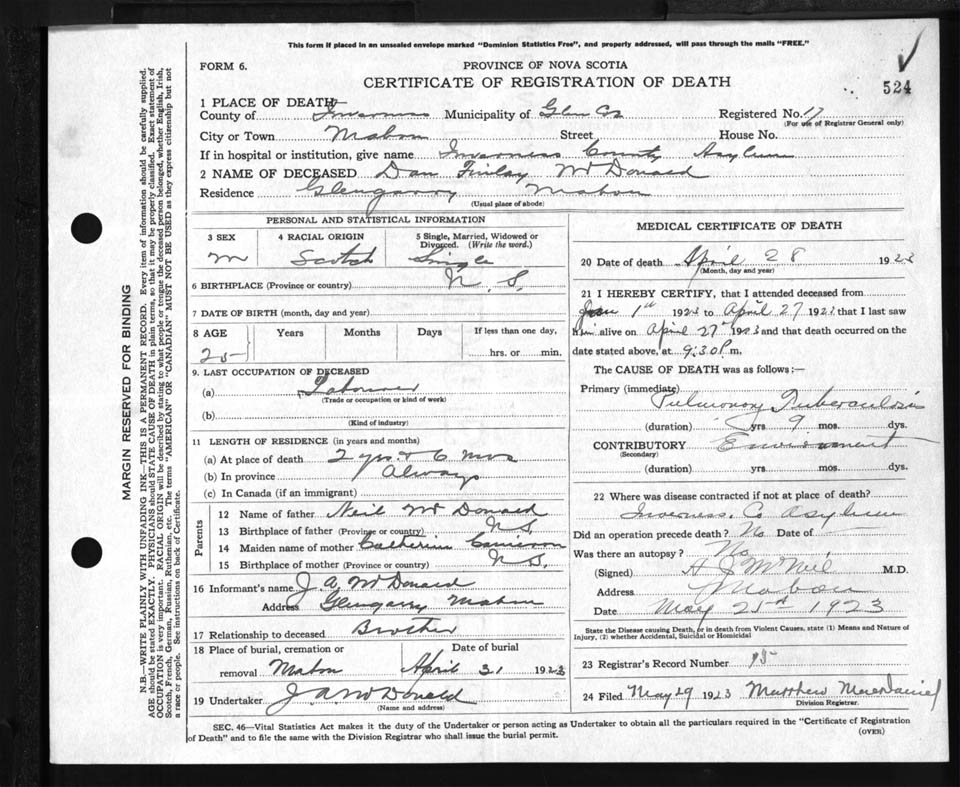 This form if placed in an unsealed envelope marked "Dominion Statistics Free", and properly addressed, will pass through the mails "FREE."
FORM 6.
PROVINCE OF NOVA SCOTIA
CERTIFICATE OF REGISTRATION OF DEATH
524
1 PLACE OF DEATH—
County of Inverness Municipality of Glen Co Registered No. 17
(For use of Registrar General only)
City or Town Mabou Street House No.
If in hospital or institution, give name Inverness County Asylum
2 NAME OF DECEASED Dan Finlay McDonald
Residence Glengarry Mabou
(Usual place of abode)
PERSONAL AND STATISTICAL INFORMATION
3 SEX
M
4 RACIAL ORIGIN
Scotch
5 Single, Married, Widowed or Divorced. (Write the word.)
Single
6 BIRTHPLACE (Province or country) N. S.
7 DATE OF BIRTH (month, day and year)
8 AGE Years Months Days If less than one day,
25 hrs. or min.
9. LAST OCCUPATION OF DECEASED
(a) Labourer
(Trade or occupation or kind of work)
(b)
(Kind of industry)
11 LENGTH OF RESIDENCE (in years and months)
(a) At place of death 2 yrs. & 6 mos
(b) In province Always
(c) In Canada (if an immigrant)
Parents
12 Name of father Neil McDonald
13 Birthplace of father (Province or country) N.S.
14 Maiden name of mother Catherine Cameron
15 Birthplace of mother (Province or country) N.S.
16 Informant's name J. A. McDonald
Address Glengarry Mabou
17 Relationship to deceased Brother
18 Place of burial, cremation or removal Mabou
Date of burial
April 31 1923
19 Undertaker J. A. McDonald
(Name and address)
MEDICAL CERTIFICATE OF DEATH
20 Date of death April 28 1923
(Month, day and year)
21 I HEREBY CERTIFY, that I attended deceased from
1st 1923 to April 27 1923 that I last saw
him alive on April 27th 1923 and that death occurred on
date stated above, at 9:30 P.m.
The CAUSE OF DEATH was as follows:—
Primary (immediate)
Pulmonary Tuberculosis
(duration) yrs. 9 mos. dys.
CONTRIBUTORY Environment
(Secondary)
(duration) yrs. mos. dys.
22 Where was disease contracted if not at place of death?
Inverness. Co Asylum
Did an operation precede death? No Date of
Was there an autopsy? No
(Signed) H J McNeil M.D.
Address Mabou
Date May 21st 1923
State the Disease causing Death, or in death from Violent Causes, state (1) Means and Nature of Injury, (2) whether Accidental, Suicidal or Homicidal
23 Registrar's Record Number
24 Filed May 29 1923 Matthew MacDaniel
Division Registrar.
SEC. 46—Vital Statistics Act makes it the duty of the Undertaker or person acting as Undertaker to obtain all the particulars required in the "Certificate of Registration
of Death" and to file the same with the Division Registrar who shall issue the burial permit.
(OVER)
MARGIN RESERVED FOR BINDING
N.B.—WRITE PLAINLY WITH UNFADING INK—THIS IS A PERMANENT RECORD. Every item of information should be carefully supplied.
AGE should be stated EXACTLY. PHYSICIANS should STATE CAUSE OF DEATH in plain terms, so that it may be properly classified. Exact statement of
OCCUPATION is very important. RACIAL ORIGIN will be described by stating to what people or tongue the deceased person belonged, whether English, Irish,
Scotch, French, German, Russian, Ruthenian, etc. The terms "AMERICAN" OR "CANADIAN" MUST NOT BE USED as they express citizenship but not
a race or people. See instructions on back of Certificate.